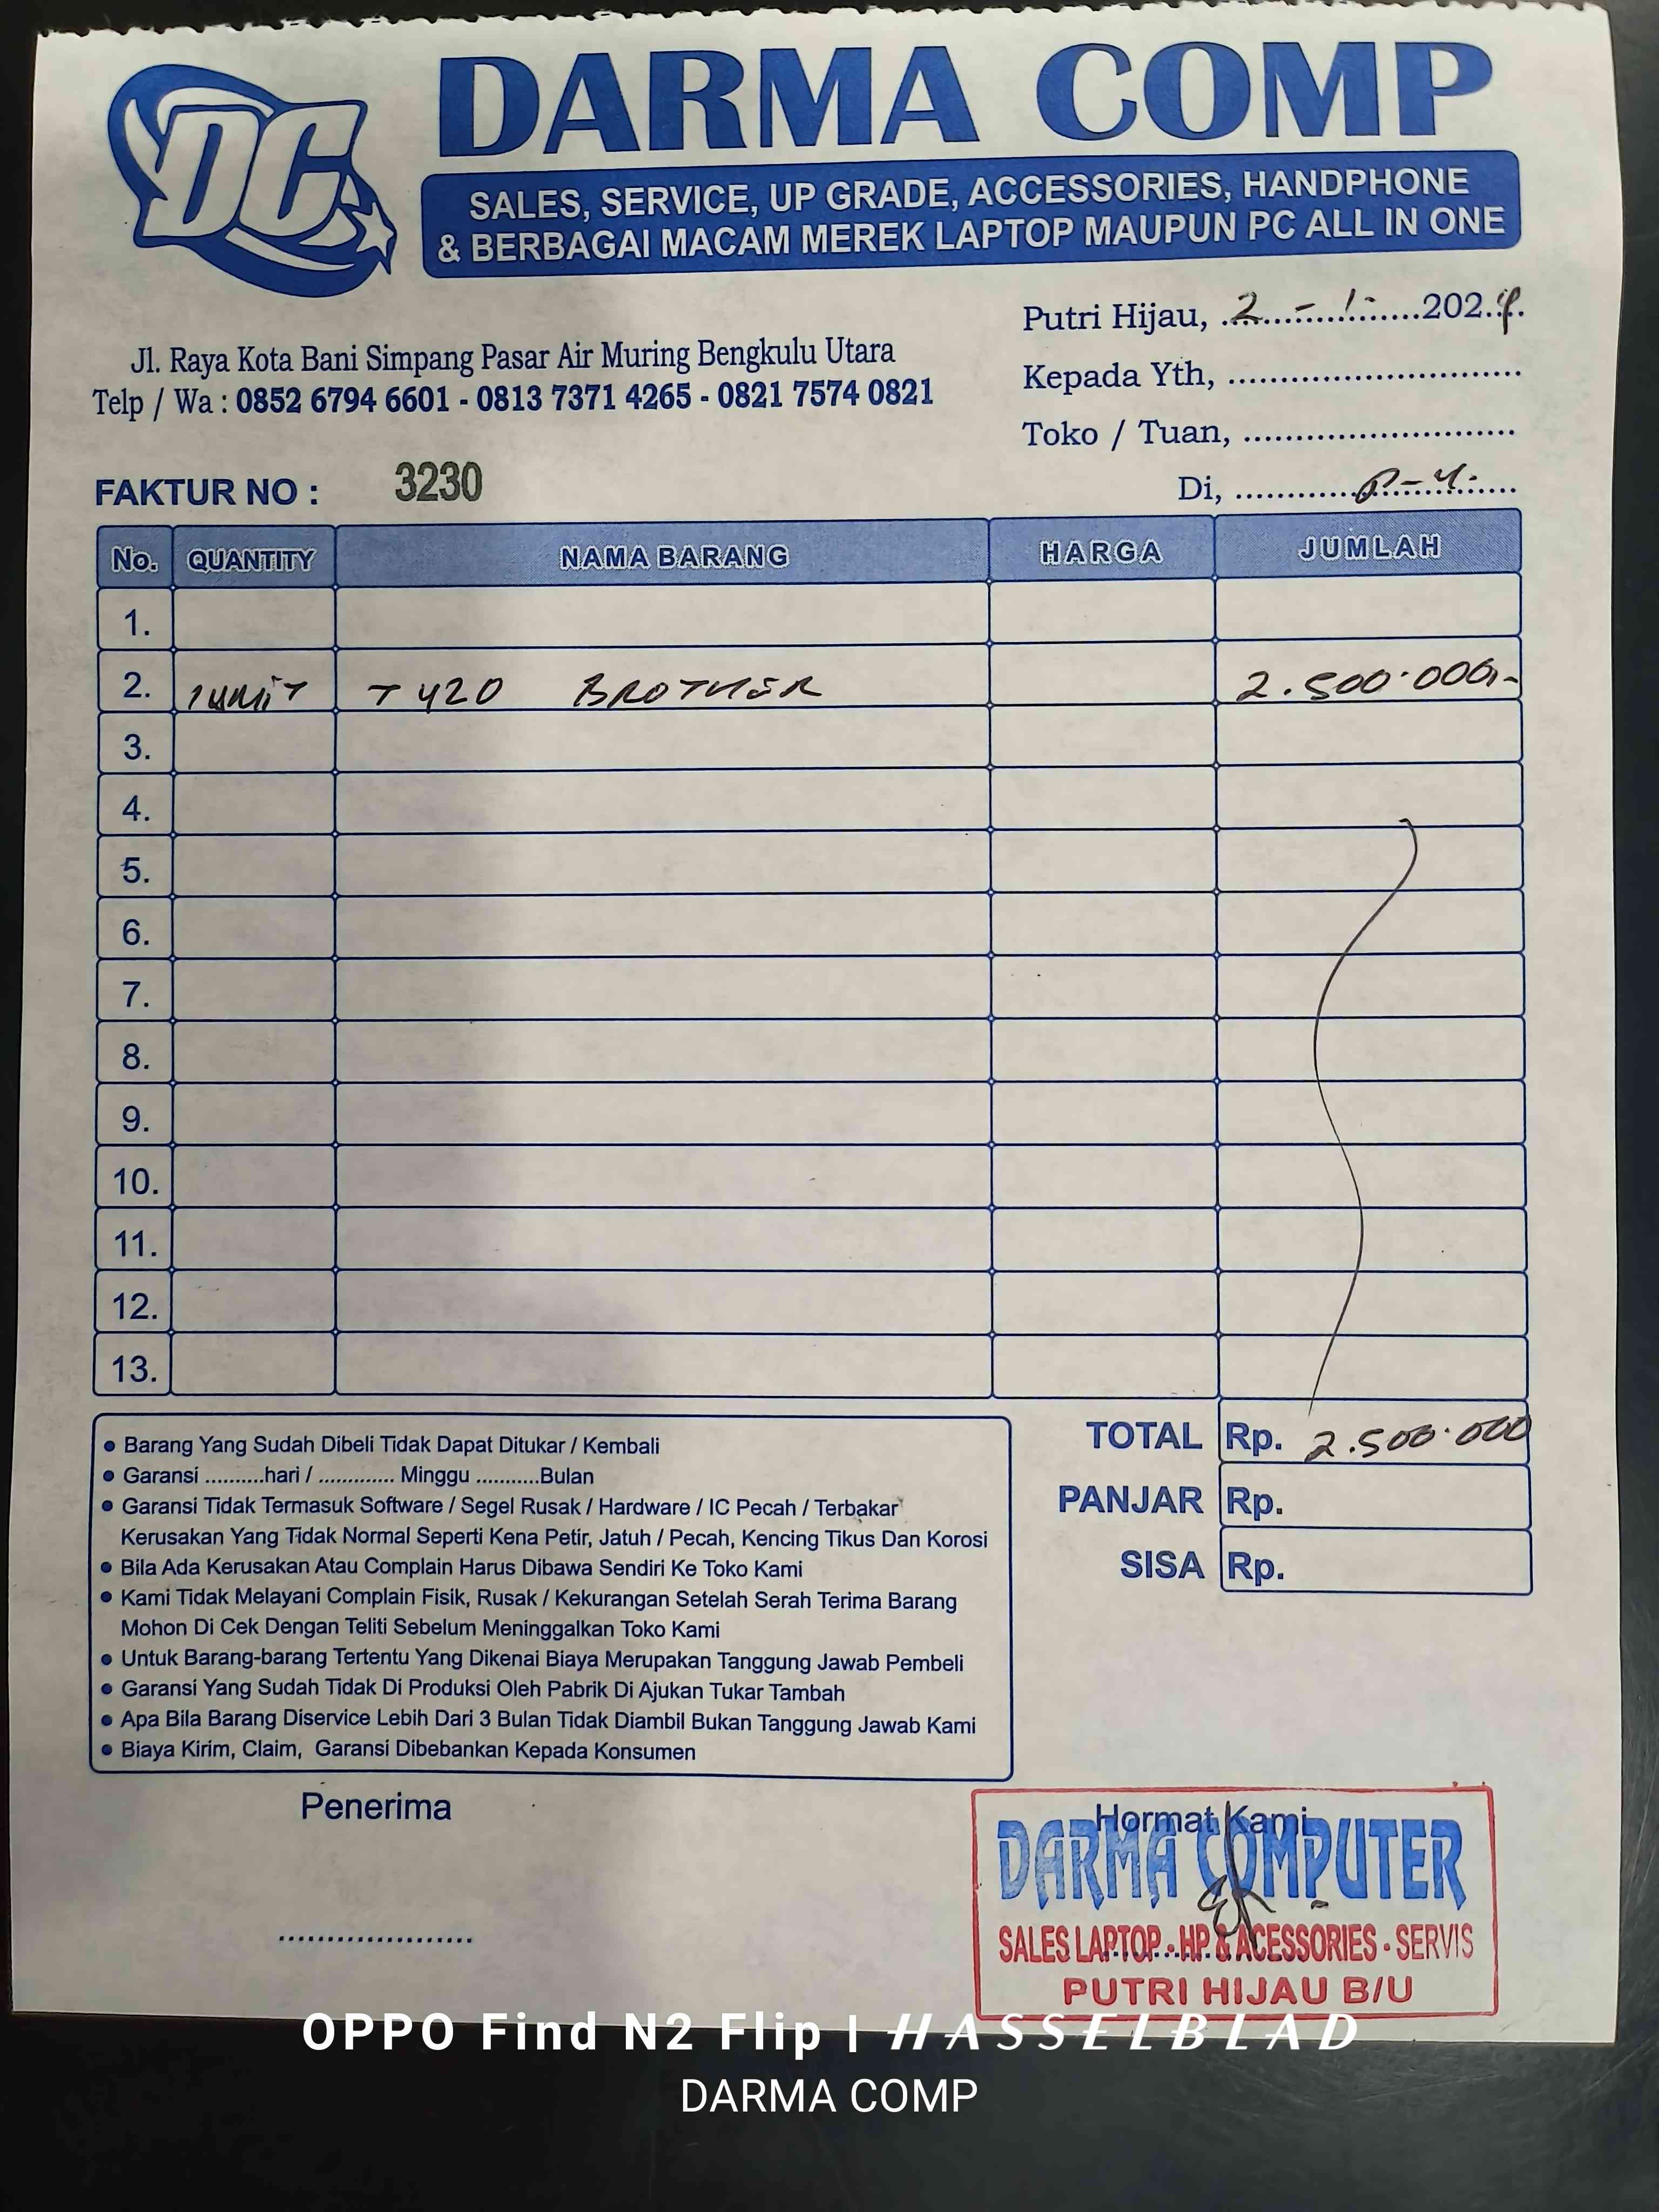 DC
DARMA COMP
SALES, SERVICE, UP GRADE, ACCESSORIES, HANDPHONE
& BERBAGAI MACAM MEREK LAPTOP MAUPUN PC ALL IN ONE
Jl. Raya Kota Bani Simpang Pasar Air Muring Bengkulu Utara
Telp / Wa : 0852 6794 6601 - 0813 7371 4265 - 0821 7574 0821
Putri Hijau, 2 - 1 - 2024.
Kepada Yth, ............................
Toko / Tuan, ..........................
Di,
FAKTUR NO : 3230
No. QUANTITY NAMA BARANG HARGA JUMLAH
1.
2. 1 UNIT T 420 BROTHER 2.500.000,-
3.
4.
5.
6.
7.
8.
9.
10.
11.
12.
13.
TOTAL Rp. 2.500.000
PANJAR Rp.
SISA Rp.
• Barang Yang Sudah Dibeli Tidak Dapat Ditukar / Kembali
• Garansi ..........hari / ............. Minggu ...........Bulan
• Garansi Tidak Termasuk Software / Segel Rusak / Hardware / IC Pecah / Terbakar
Kerusakan Yang Tidak Normal Seperti Kena Petir, Jatuh / Pecah, Kencing Tikus Dan Korosi
• Bila Ada Kerusakan Atau Complain Harus Dibawa Sendiri Ke Toko Kami
• Kami Tidak Melayani Complain Fisik, Rusak / Kekurangan Setelah Serah Terima Barang
Mohon Di Cek Dengan Teliti Sebelum Meninggalkan Toko Kami
• Untuk Barang-barang Tertentu Yang Dikenai Biaya Merupakan Tanggung Jawab Pembeli
• Garansi Yang Sudah Tidak Di Produksi Oleh Pabrik Di Ajukan Tukar Tambah
• Apa Bila Barang Diservice Lebih Dari 3 Bulan Tidak Diambil Bukan Tanggung Jawab Kami
• Biaya Kirim, Claim, Garansi Dibebankan Kepada Konsumen
Penerima
.....................
Hormat Kami
DARMA COMPUTER
SALES LAPTOP - HP & ACESSORIES - SERVIS
PUTRI HIJAU B/U
OPPO Find N2 Flip | HASSELBLAD
DARMA COMP